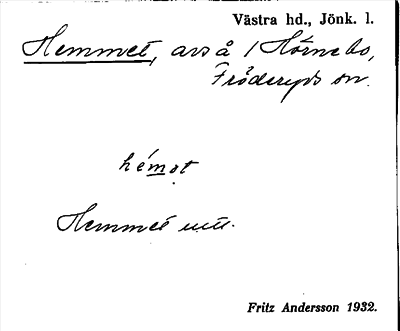 Västra hd., Jönk. l.
Hemmet, avs å 1 Hörnebo,
Fröderyds sn.
hémət
Hemmet utt.
Fritz Andersson 1932.